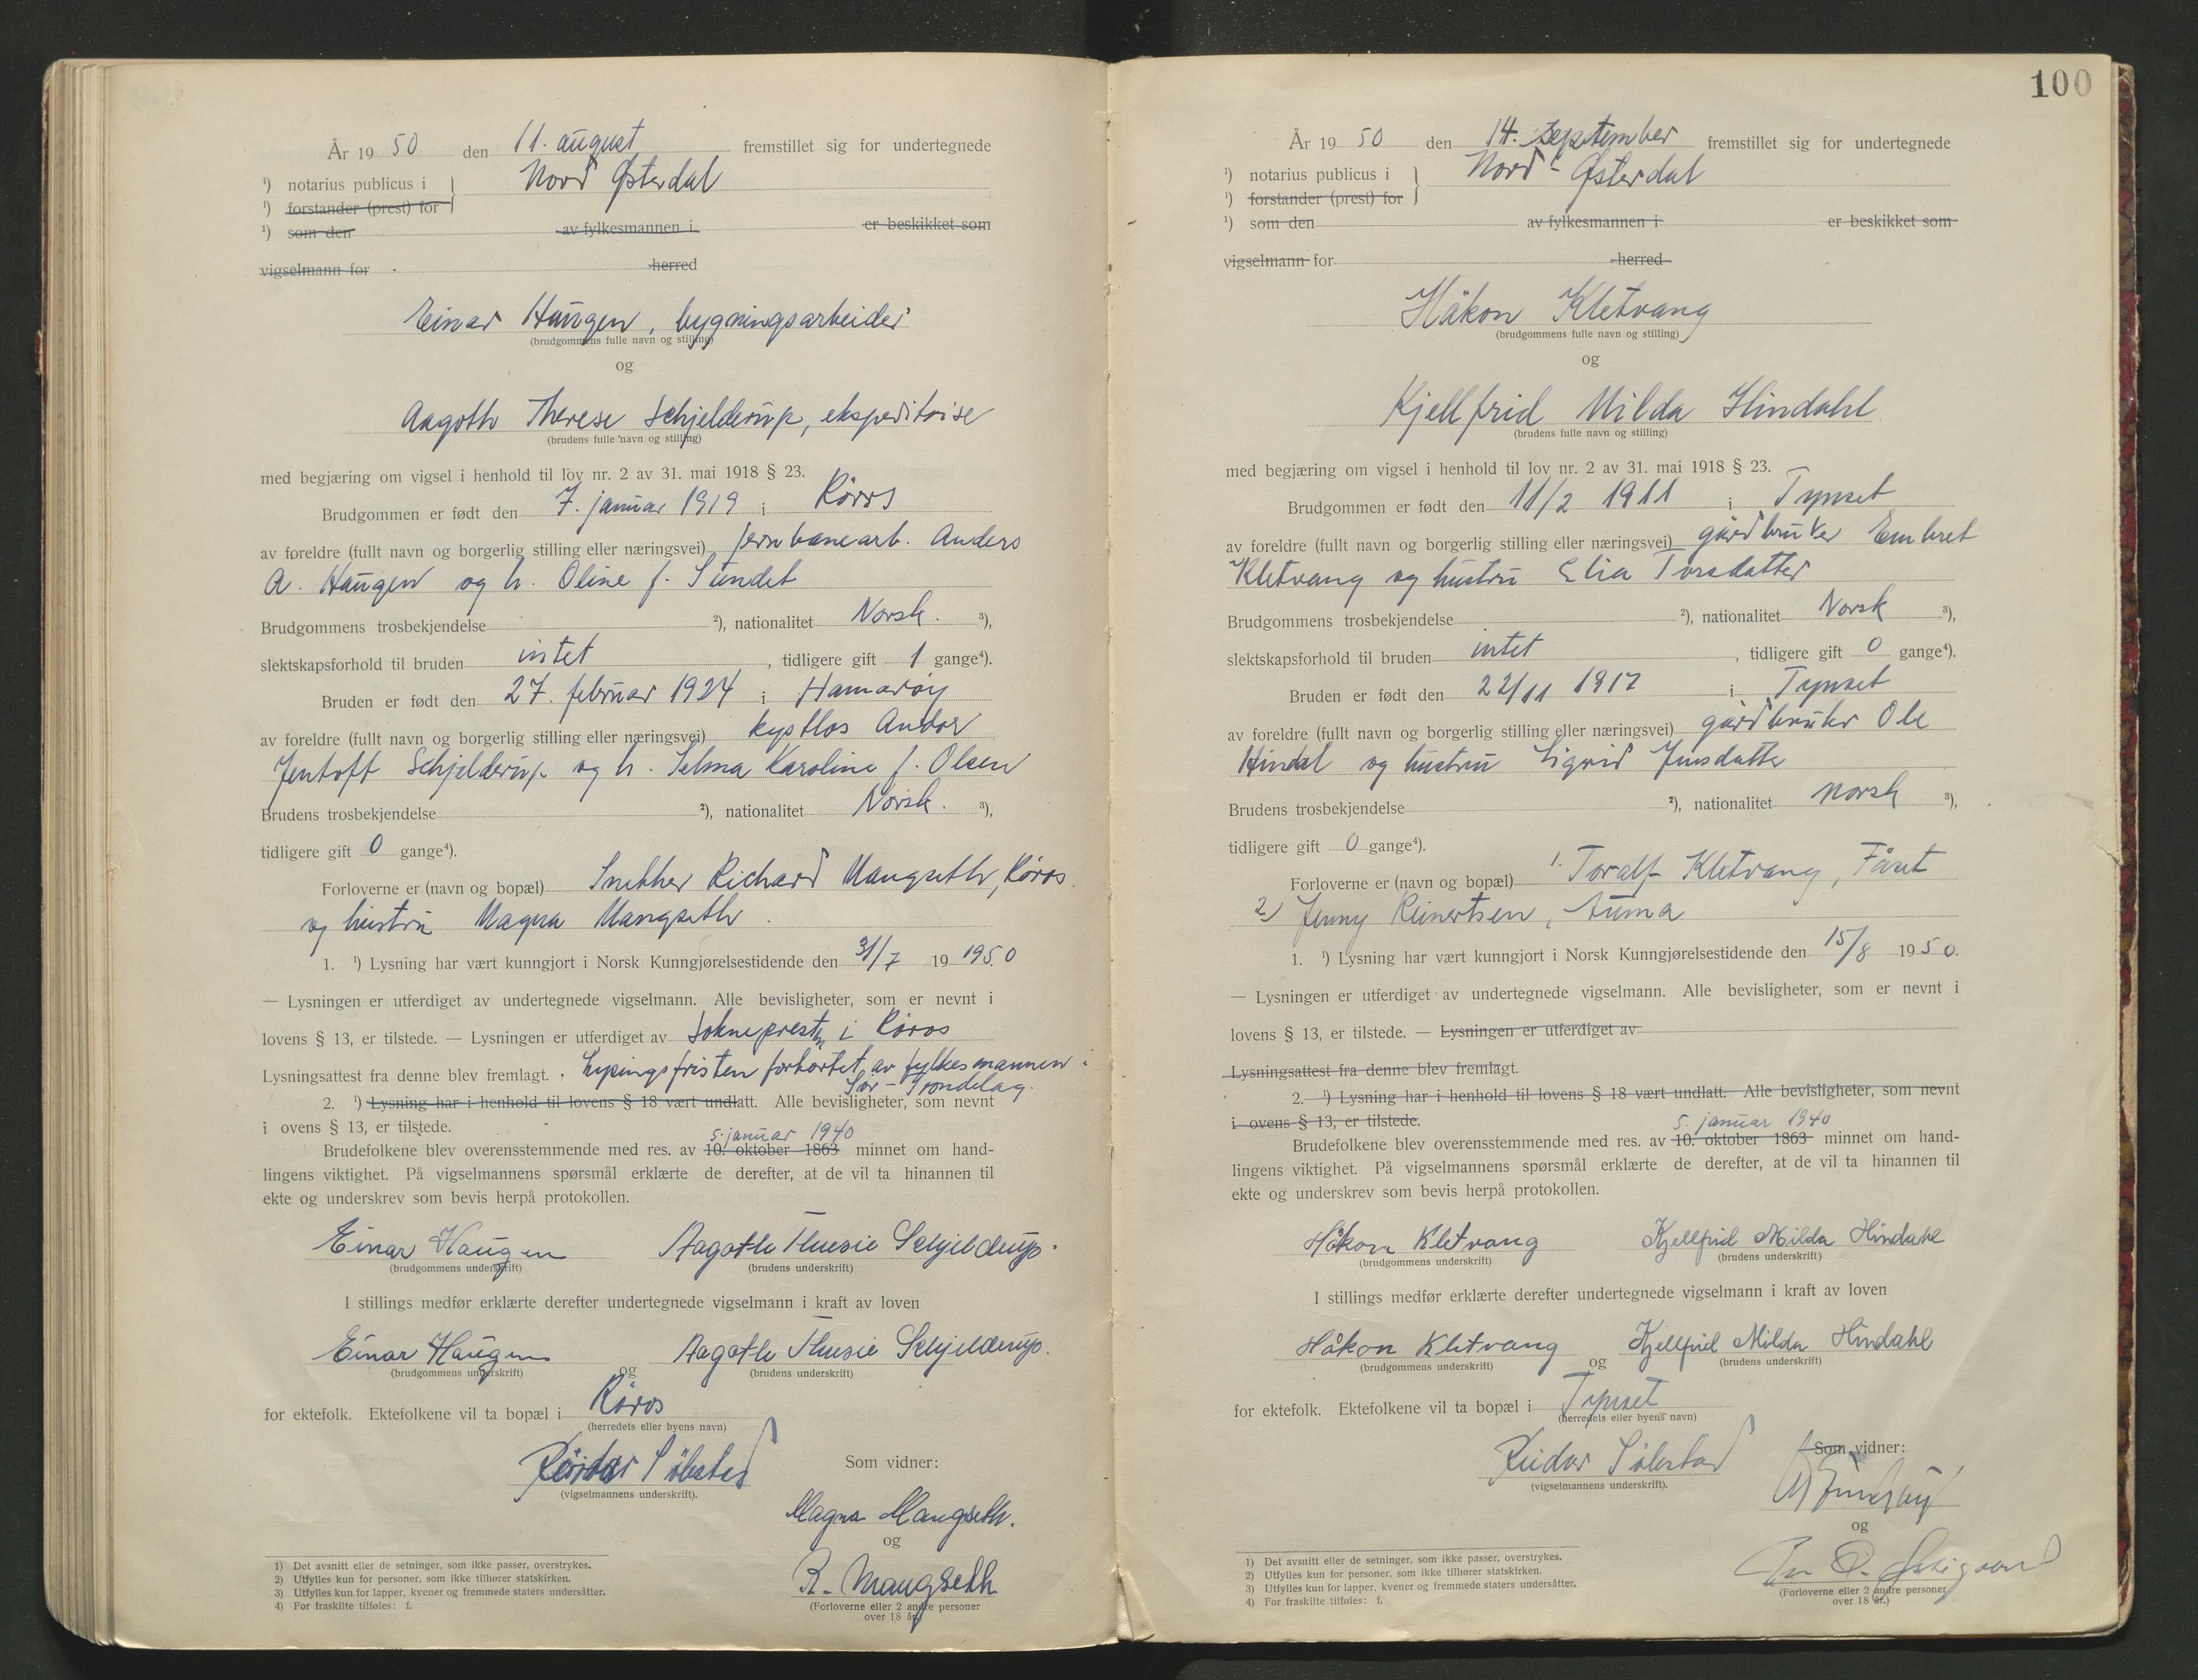 År 19 50 den 11. august fremstillet sig for undertegnede
¹) notarius publicus i } Nord Østerdal
¹) forstander (prest) for
¹) som den av fylkesmannen i er beskikket som
vigselmann for herred
Einar Haugen, bygningsarbeider
(brudgommens fulle navn og stilling)
og
Aagoth Therese Schjelderup, ekspeditrise
(brudens fulle navn og stilling)
med begjæring om vigsel i henhold til lov nr. 2 av 31. mai 1918 § 23.
Brudgommen er født den 7. januar 1919 i Røros
av foreldre (fullt navn og borgerlig stilling eller næringsvei) jernbanearb. Anders
A. Haugen og h. Oline f. Sundet
Brudgommens trosbekjendelse ²), nationalitet Norsk. ³),
slektskapsforhold til bruden intet, tidligere gift 1 gange⁴).
Bruden er født den 27. februar 1924 i Hamarøy
av foreldre (fullt navn og borgerlig stilling eller næringsvei) kystlos Andor
Jentoft Schjelderup og h. Selma Karoline f. Olsen
Brudens trosbekjendelse ²), nationalitet Norsk. ³),
tidligere gift 0 gange⁴).
Forloverne er (navn og bopæl) Snekker Richard Mangseth, Røros.
og hustru Magna Mangseth.
1. ¹) Lysning har vært kunngjort i Norsk Kunngjørelsestidende den 31/7 19 1950
— Lysningen er utferdiget av undertegnede vigselmann. Alle bevisligheter, som er nevnt i
lovens § 13, er tilstede. — Lysningen er utferdiget av Soknepresten i Røros
Lysningsattest fra denne blev fremlagt. Lysingsfristen forkortet av fylkesmannen i
Sør-Trøndelag.
2. ¹) Lysning har i henhold til lovens § 18 vært undlatt. Alle bevisligheter, som nevnt
i ovens § 13, er tilstede.
5. januar 1940
Brudefolkene blev overensstemmende med res. av 10. oktober 1863 minnet om hand-
lingens viktighet. På vigselmannens spørsmål erklærte de derefter, at de vil ta hinannen til
ekte og underskrev som bevis herpå protokollen.
Einar Haugen Aagoth Theresie Schjelderup.
(brudgommens underskrift) (brudens underskrift)
I stillings medfør erklærte derefter undertegnede vigselmann i kraft av loven
Einar Haugen og Aagoth Theresie Schjelderup.
(brudgommens underskrift) (brudens underskrift)
for ektefolk. Ektefolkene vil ta bopæl i Røros
(herredets eller byens navn)
Reidar Sølestad
(vigselmannens underskrift).
Som vidner:
Magna Mangseth.
og
R. Mangseth
(Forloverne eller 2 andre personer
over 18 år.)
1) Det avsnitt eller de setninger, som ikke passer, overstrykes.
2) Utfylles kun for personer, som ikke tilhører statskirken.
3) Utfylles kun for lapper, kvener og fremmede staters undersåtter.
4) For fraskilte tilføies: f.
100
År 19 50 den 14. september fremstillet sig for undertegnede
¹) notarius publicus i } Nord-Østerdal
¹) forstander (prest) for
¹) som den av fylkesmannen i er beskikket som
vigselmann for herred
Håkon Kletvang
(brudgommens fulle navn og stilling)
og
Kjellfrid Milda Hindahl
(brudens fulle navn og stilling)
med begjæring om vigsel i henhold til lov nr. 2 av 31. mai 1918 § 23.
Brudgommen er født den 11/2 1911 i Tynset
av foreldre (fullt navn og borgerlig stilling eller næringsvei) gårdbruker Embret
Kletvang og hustru Elia Torsdatter
Brudgommens trosbekjendelse ²), nationalitet Norsk ³),
slektskapsforhold til bruden intet, tidligere gift 0 gange⁴).
Bruden er født den 22/11 1917 i Tynset
av foreldre (fullt navn og borgerlig stilling eller næringsvei) gårdbruker Ole
Hindal og hustru Sigrid Jensdatter
Brudens trosbekjendelse ²), nationalitet norsk ³),
tidligere gift 0 gange⁴).
Forloverne er (navn og bopæl) 1. Toralf Kletvang, Fåset
2) Jenny Reinertsen, Auma
1. ¹) Lysning har vært kunngjort i Norsk Kunngjørelsestidende den 15/8 1950.
— Lysningen er utferdiget av undertegnede vigselmann. Alle bevisligheter, som er nevnt i
lovens § 13, er tilstede. — Lysningen er utferdiget av
Lysningsattest fra denne blev fremlagt.
2. ¹) Lysning har i henhold til lovens § 18 vært undlatt. Alle bevisligheter, som nevnt
i ovens § 13, er tilstede.
5. januar 1940
Brudefolkene blev overensstemmende med res. av 10. oktober 1863 minnet om hand-
lingens viktighet. På vigselmannens spørsmål erklærte de derefter, at de vil ta hinannen til
ekte og underskrev som bevis herpå protokollen.
Håkon Kletvang Kjellfrid Milda Hindahl
(brudgommens underskrift) (brudens underskrift)
I stillings medfør erklærte derefter undertegnede vigselmann i kraft av loven
Håkon Kletvang og Kjellfrid Milda Hindahl
(brudgommens underskrift) (brudens underskrift)
for ektefolk. Ektefolkene vil ta bopæl i Tynset
(herredets eller byens navn)
Reidar Sølestad
(vigselmannens underskrift).
Som vidner:
og
(Forloverne eller 2 andre personer
over 18 år.)
1) Det avsnitt eller de setninger, som ikke passer, overstrykes.
2) Utfylles kun for personer, som ikke tilhører statskirken.
3) Utfylles kun for lapper, kvener og fremmede staters undersåtter.
4) For fraskilte tilføies: f.